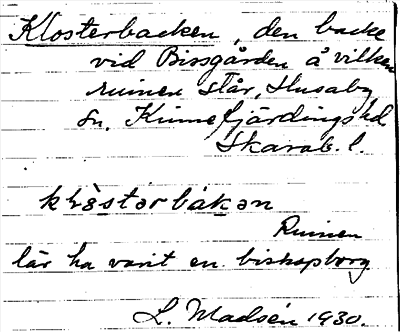 Klosterbacken, den backe
vid Bissgården å vilken
ruinen står, Husaby
sn. Kinnefjärdings hd
Skarab. l.
klòstərbákən
Ruinen
lär ha varit en biskopsborg
L. Madsén 1930.